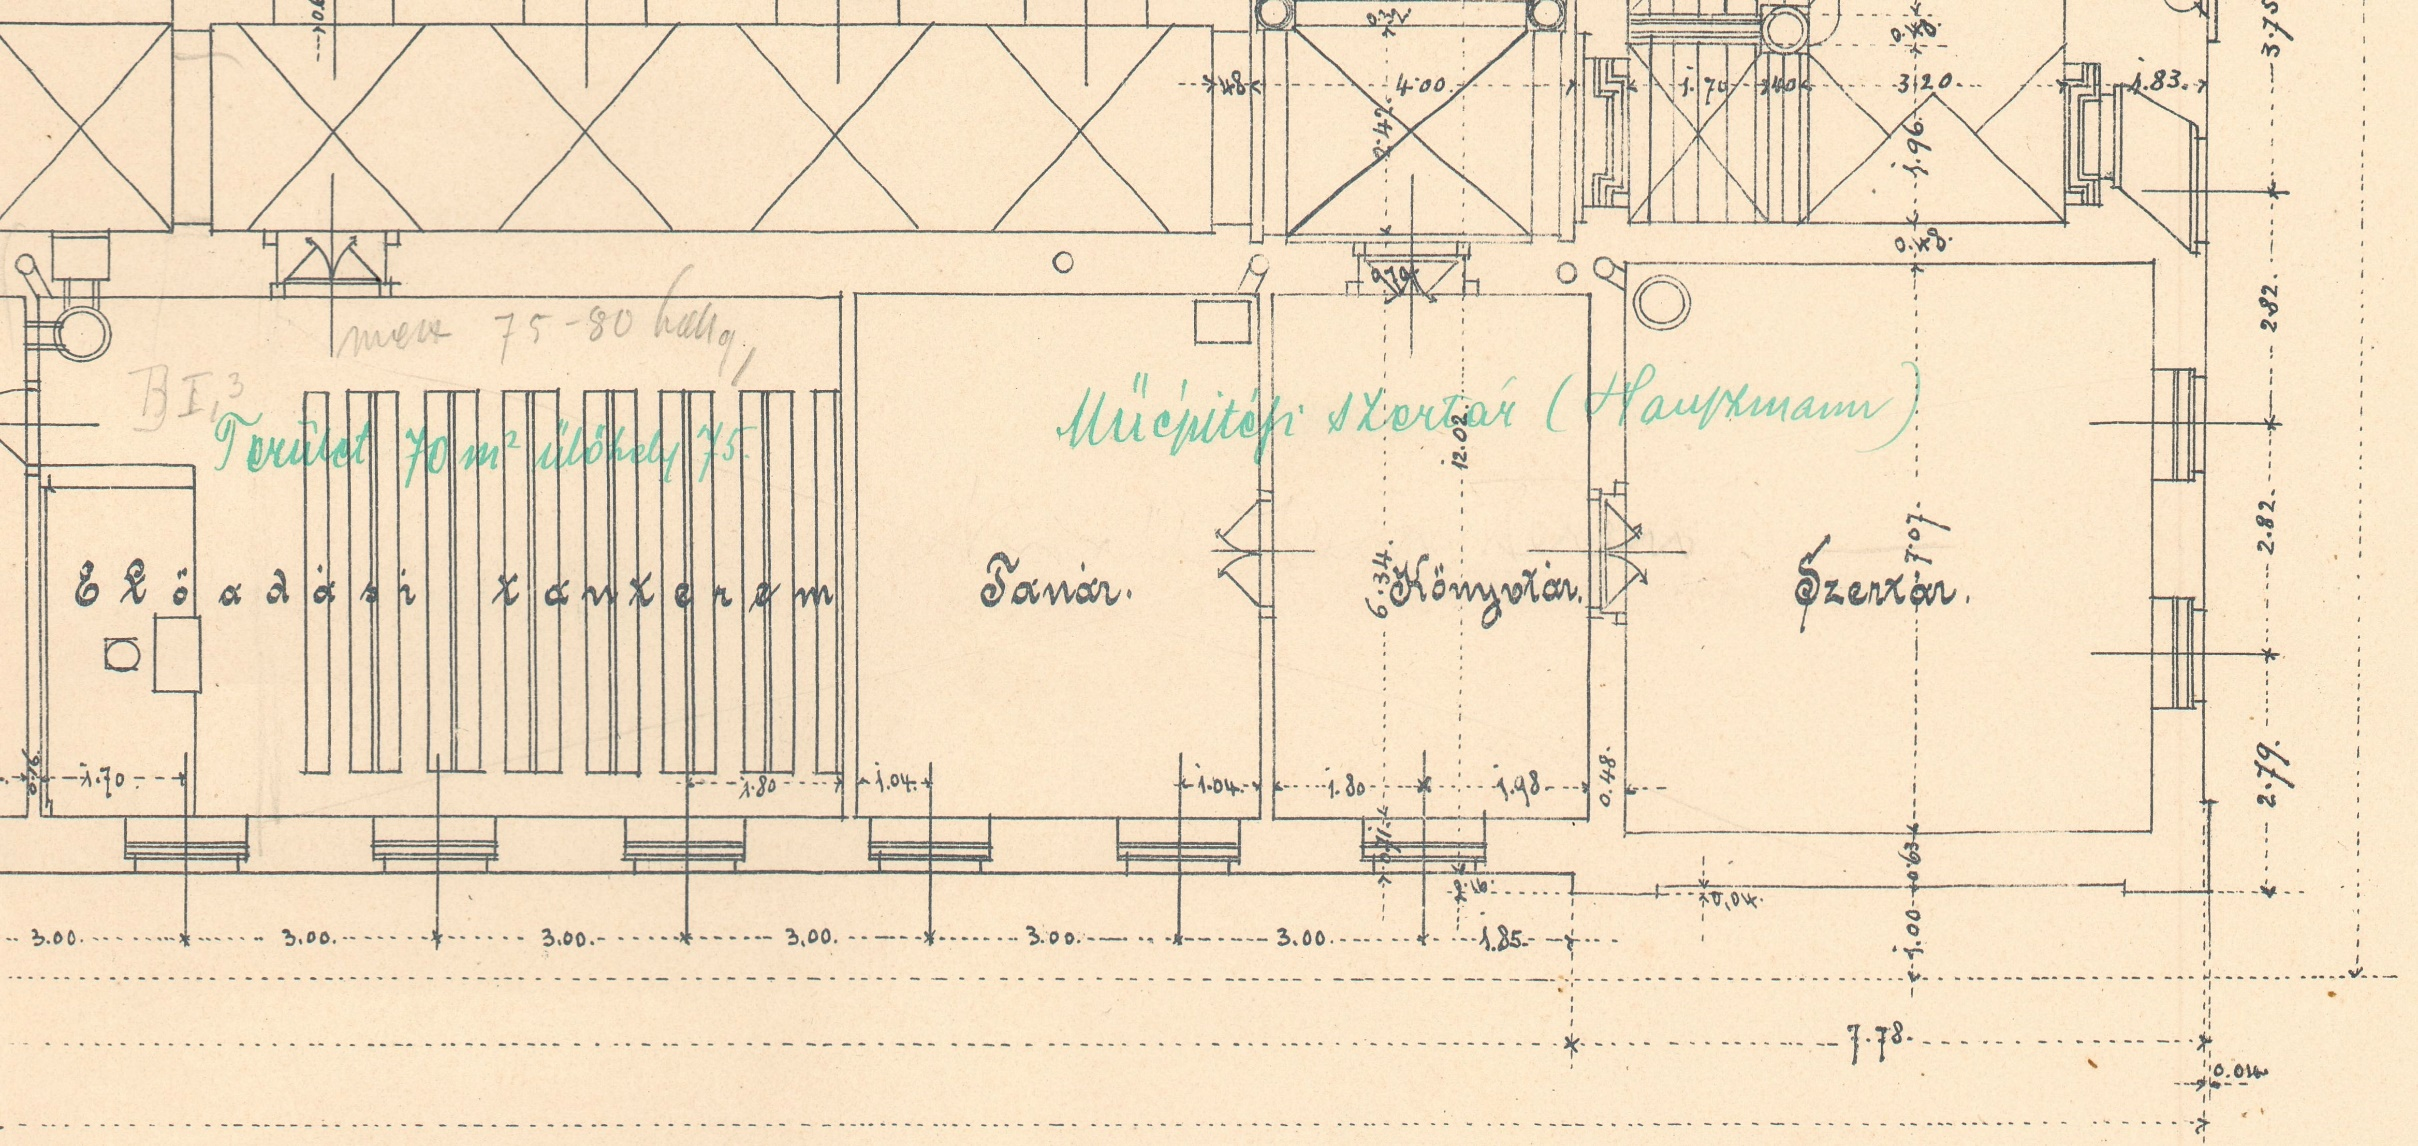 0.32
3.75
48
4.00
1.70
40
3.20
1.83.
2.42
1.96.
0.48.
2.82.
75-80
B I, 3
Terület 70 m² ülőhely 75.
Műépitési szertár (Hauszmann)
12.02.
7.07.
2.82.
Előadási tanterem
Tanár.
6.34.
Könyvtár.
Szertár.
0.16.
1.70
1.80
1.04.
1.04.
1.80
1.98
0.48.
2.79.
0.71
0.63
0.16.
0,04.
3.00.
3.00.
3.00.
3.00.
3.00.
3.00.
1.85.
1.00
7.78.
0.04